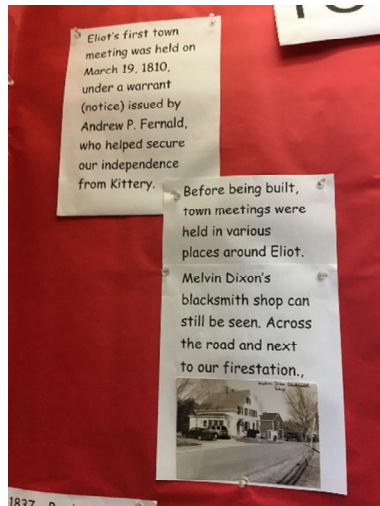 Eliot's first town
meeting was held on
March 19, 1810,
under a warrant
(notice) issued by
Andrew P. Fernald,
who helped secure
our independence
from Kittery.
Before being built,
town meetings were
held in various
places around Eliot.
Melvin Dixon's
blacksmith shop can
still be seen. Across
the road and next
to our firestation.,
1837